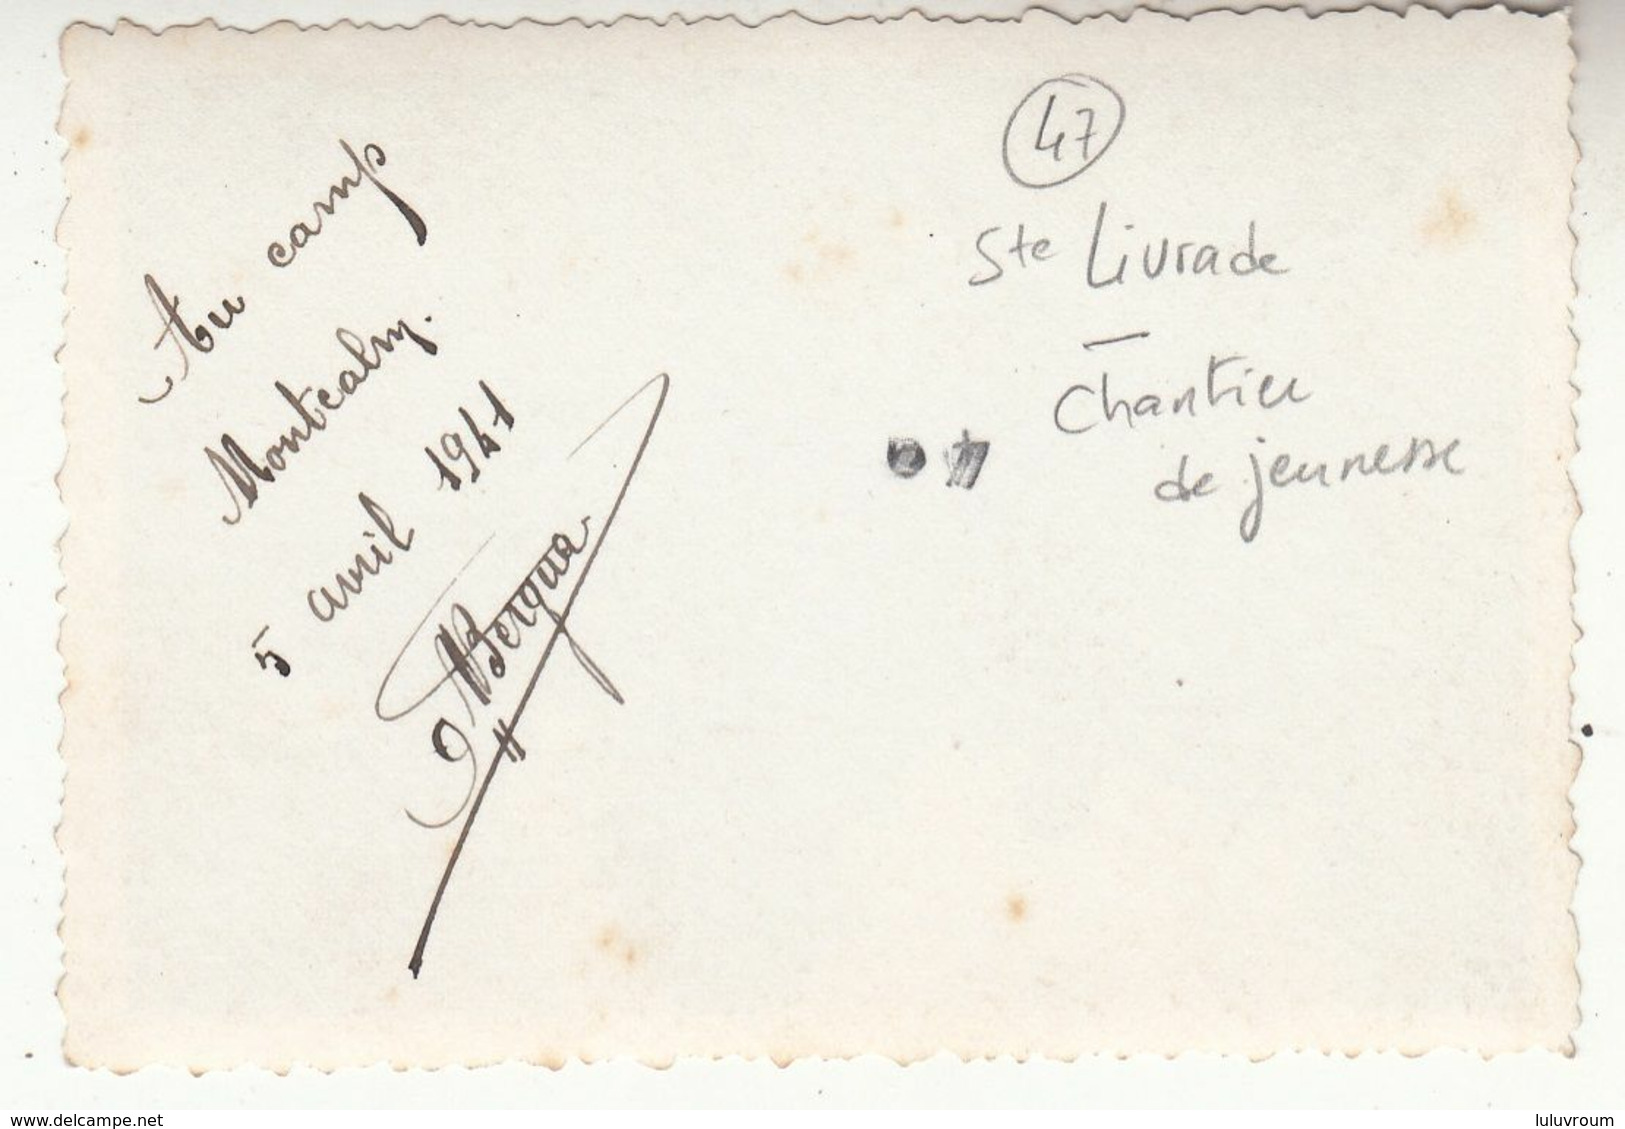 Au camp
Montcalm.
5 avril 1941
Bergua
47
Ste Livrade
—
Chantier
de jeunesse
www.delcampe.net
luluvroum